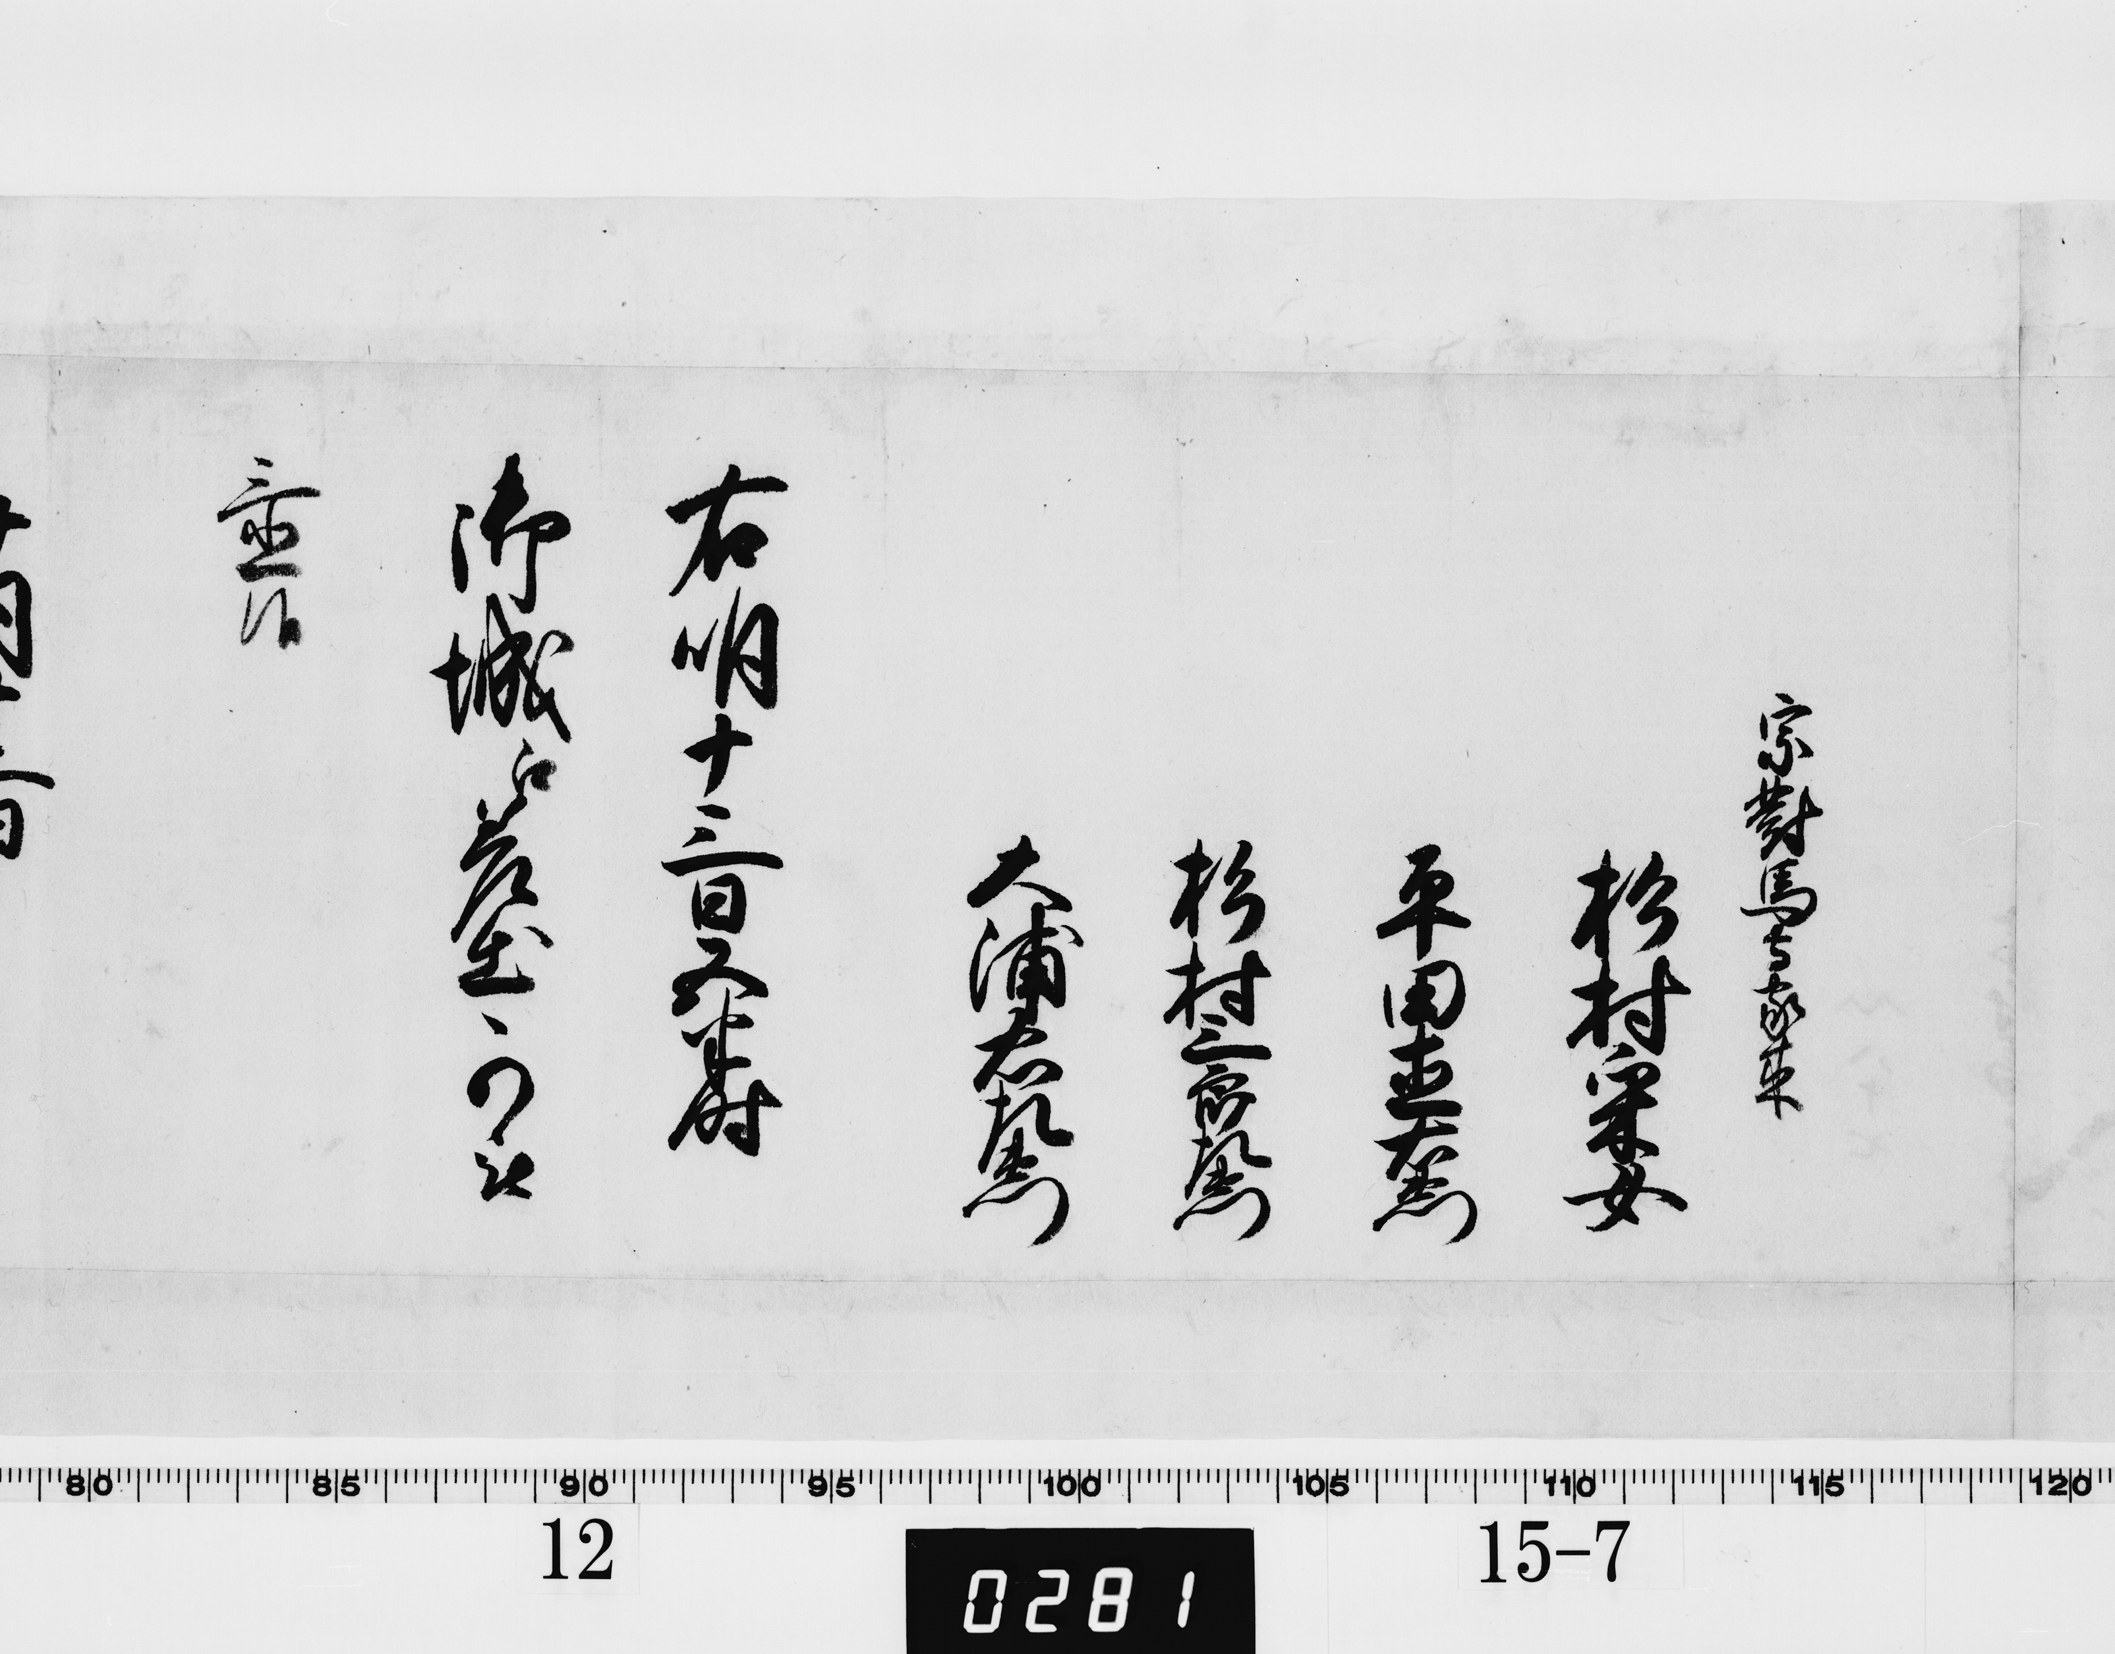 宗對馬守家来
杉村采女
平田直右衛門
杉村三郎左衛門
大浦忠左衛門
右明十三日五半時
御城江差出可
月十二日
80 85 90 95 100 105 110 115 120
12 15-7
0281